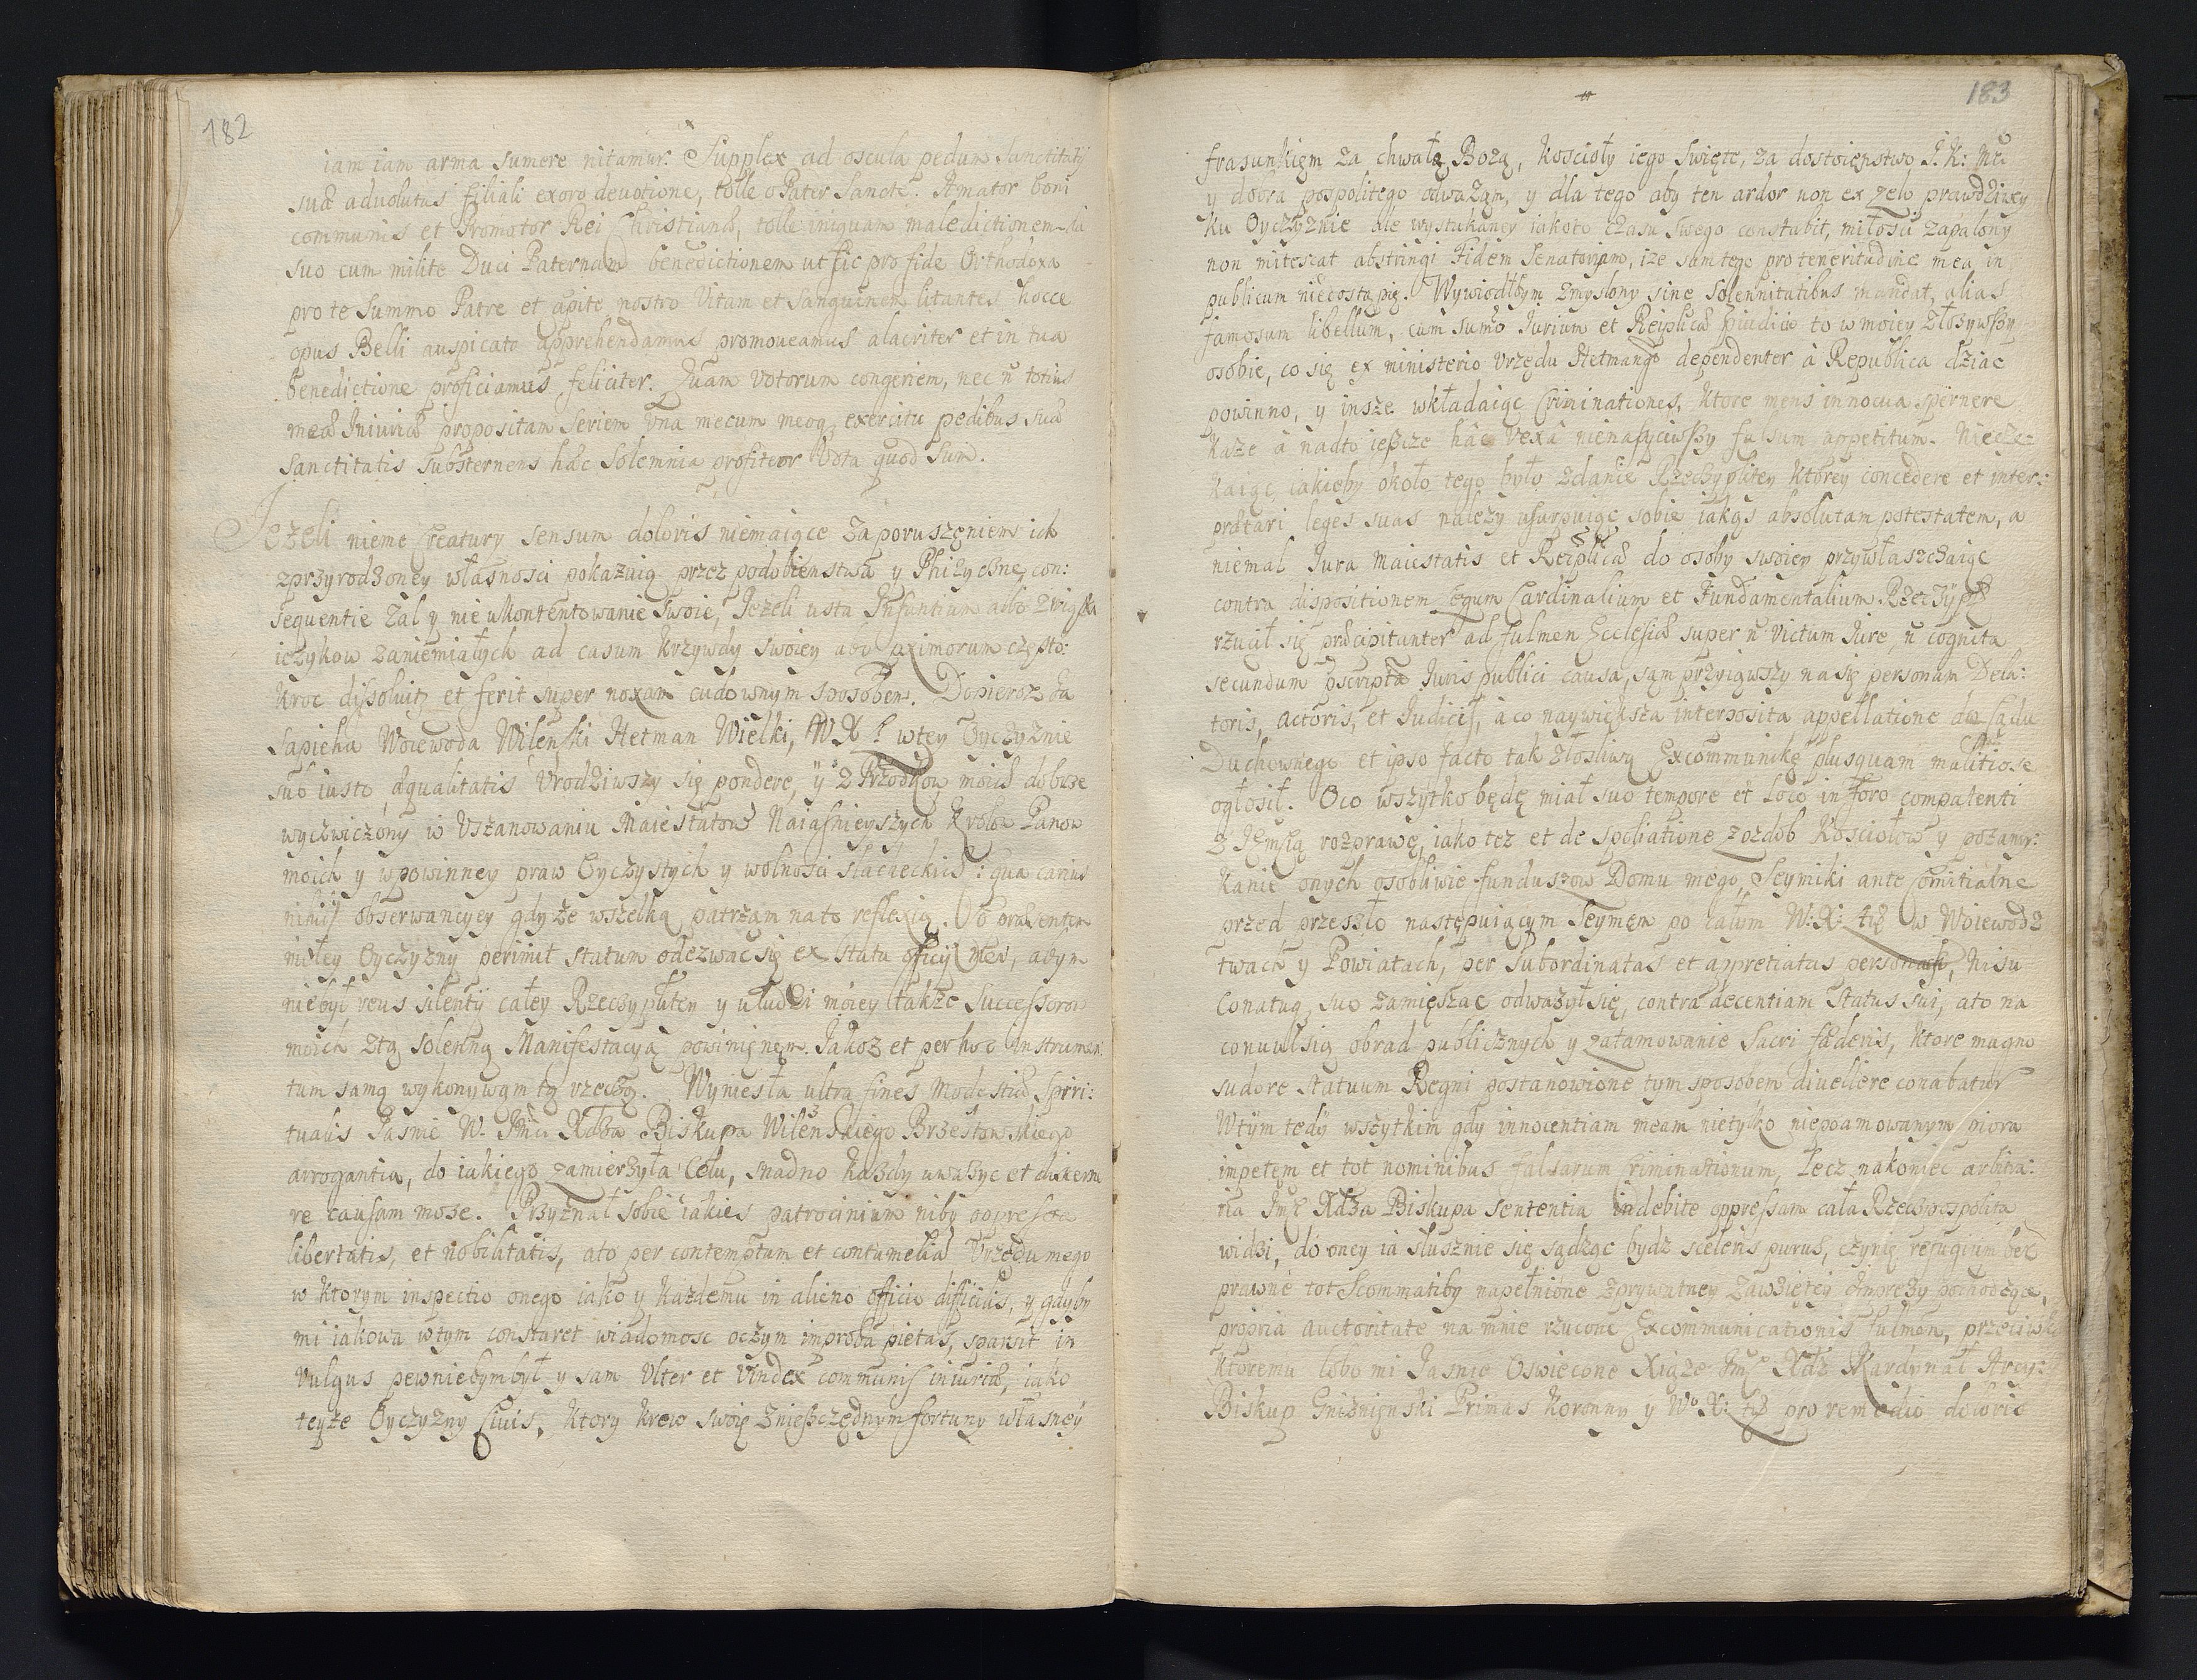 182
iam iam arma sumere nitamur. Supplex ad oscula pedum Sanctitatis
suæ aduolutus filiali exoro deuotione, tolle o Pater Sancte. Amator boni
communis et Promotor Rei Christianæ, tolle iniquam maledictionem da
suo cum milite Duci Paternam benedictionem ut sic pro fide Orthodoxa
pro te Summo Patre et capite nostro Vitam et Sanguinem litantes hocce
opus Belli auspicato apprehendamus promoueamus alacriter et in tua
benedictione proficiamus feliciter. Quam Votorum congeriem, nec n totius
meæ Iniuriæ propositam Seriem Vna mecum meoq exercitu pedibus suæ
Sanctitatis Substernens hæc Solemnia profiteor Vota quod Sum.
Jezeli nieme Creatury sensum doloris niemaiące za poruszęniem ich
z przyrodzoney własnosci pokazaią przez podobienstwa y Phizyczne con:
sequentie zal y nie ukontentowanie swoie, Jezeli usta Infantium albo związka
ięzykow zaniemiałych ad casum krzywdy swoiey abo proximorum często:
kroc dissoluit et ferit super noxam cudownym sposobem. Dopieroz Ja
Sapieha Woiewoda Wilenski Hetman Wielki, W X L wtey Oyczyznie
sub iusto æqualitatis Vrodziwszy się pondere, y z Przodkow moich dobrze
wycwiczony w Vszanowaniu Maiestatow Naiasnieyszych Krolow Panow
moich y w powinney praw Oyczystych y wolnosci slacheckich: qua carius
nihil obserwancyey gdy ze wszelką patrzam na to reflexią. Ob præsentem
miłey Oyczyzny perimit statum odezwac się ex statu officij mei, abym
nie był reus silentij całey Rzeczyplitey y u ludzi moiey takze Successorow
moich z tą solenną Manifestacyą powinięnem. Jakoz et per hoc Instrumen:
tum samą wykonywam tą rzeczą. Wyniesła ultra fines modestiæ Spiri:
tualis Jasnie W. Jmci Xdza Biskupa Wilenskiego Brzestowskiego
arrogantia, do iakiego zamierzyła Celu, snadno kazdy uwazyc et discerne
re causam moze. Przyznał sobie iakies patrocinium niby oppressæ
libertatis, et nobilitatis, a to per contemptum et contumelia Vrzędu mego
w ktorym inspectio onego iako y kazdemu in alieno officio difficilis, y gdyby
mi iakowa w tym constaret wiadomosc oczym improba pietas, sparsit in
vulgus pewnie bym był y sam Vlter et Vindex communis iniuriæ, iako
teyze Oyczyzny Ciuis, ktory krew swoię z nieszczędnym fortuny własney
183
frasunkięm za chwałą Bozą, koscioły iego Swięte, za dostoięnstwo J. K. Mci
y dobra pospolitego odwazam, y dla tego aby ten ardor non ex zelo prawdziwey
ku Oyczyznie ale wystukaney iakoto czasu swego constabit, miłosci zapalony
non mitescat abstringi Fidem Senatoriam, ize sam tego pro teneritudine mea in
publicum niedostąpię. Wywiodłbym zmyslony sine Solennitatibus mandat, alias
famosum libellum, cum sumo Iurium et Reiplicæ præiudicio to w moiey złozywszy
osobie, co się ex ministerio Vrzędu Hetmango dependenter à Republica dziac
powinno, y insze wkładaiąc Criminationes, ktore mens innocua spernere
kaze à nadto ieszcze hac vexa nienasyciwszy falsum appetitum. Niecze:
kaiąc, iakieby około tego było zdanie Rzeczyplitey ktorey concedere et inter:
prætari leges suas nalezy usurpuiąc sobie iakąs absolutam potestatem, a
niemal Jura Maiestatis et Reiplicæ do osoby swoiey przywłaszczaiąc
contra dispositionem Legum Cardinalium et Fundamentalium
rzucił się præcipitanter ad fulmen Ecclesiæ super n Victum Iure, n cognita
secundum pscripta Iuris publici causa, sam przyiąwszy na się personam Dela:
toris, actoris, et Iudicis, à co naywiększa interposita appellatione do sądu
Duchownego et ipso facto tak złosliwą Excommunikę plusquam malitiose
ogłosił. Oco wszytko będę miał suo tempore et loco in foro competenti
z Jemscią rozprawę, iako tez et de spoliatione zozdob Kosciołow y pozamy:
kanie onych osobliwie funduszow Domu mego, Seymiki ante Comitialne
przed przeszło następuiącym Seymem po całym W: X: Litt w Woiewodz
twach y Powiatach, per Subordinatas et appretiatas personas, nisu
Conatuq suo zamięszac odwazył się, contra decentiam Status sui, a to na
conuulsią obrad publicznych y zatamowanie Sacri fæderis, ktore magno
sudore statuum Regni postanowione tym sposobem diuellere conabatur
Wtym tedy wszytkim gdy innocentiam meam nietylko niepoamowanym piora
impetem et tot nominibus falsarum Criminationum, lecz nakoniec arbitra:
ria Jmci Xdza Biskupa Sententia indebite oppressam cała Rzeczpospolita
widzi, do oney ia słusznie się sądząc bydz sceleris purus, czynię refugium bez
prawne tot Scommatiby napełnione z prywatney zawziętey Imprezy pochodzące,
propria auctoritate na mnie rzucone Excommunicationis fulmen, przeciwko
ktoremu lubo mi Jasnie Oswiecone Xiąze Jmc Xdz Kardynał Arcy:
Biskup Gniezninski Primas Koronny y W° X: Litt pro remedio doloris